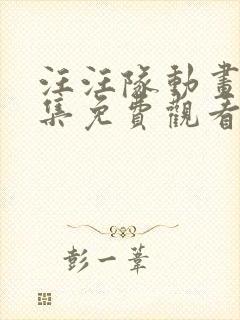 汪汪隊動畫
集免費觀看
彭一葦